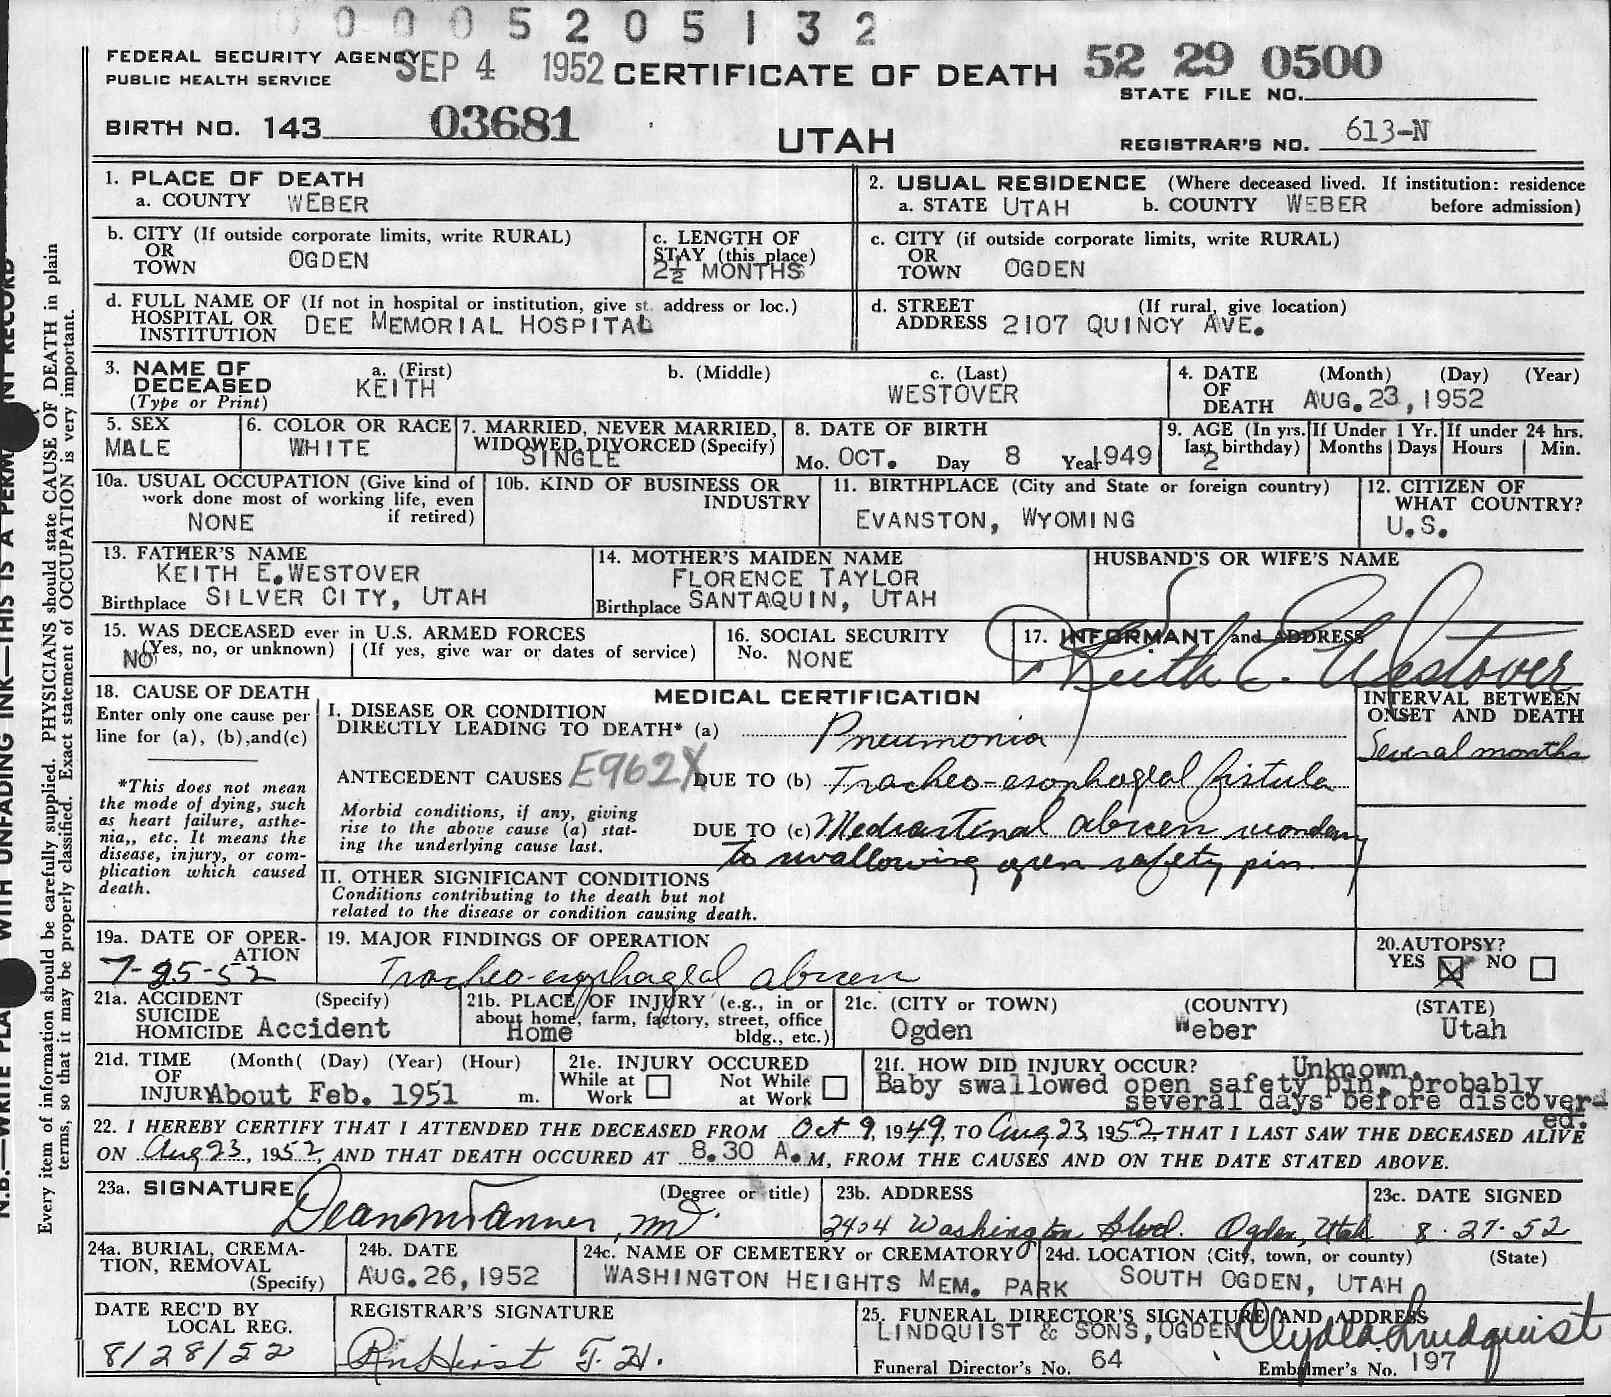 0 0 0 0 5 2 0 5 1 3 2
FEDERAL SECURITY AGENCY
PUBLIC HEALTH SERVICE
SEP 4 1952
CERTIFICATE OF DEATH
52 29 0500
STATE FILE NO.
BIRTH NO. 143 03681
UTAH
REGISTRAR'S NO. 613-N
1. PLACE OF DEATH
a. COUNTY WEBER
2. USUAL RESIDENCE (Where deceased lived. If institution: residence before admission)
a. STATE UTAH b. COUNTY WEBER
b. CITY (If outside corporate limits, write RURAL)
OR
TOWN OGDEN
c. LENGTH OF
STAY (this place)
2½ MONTHS
c. CITY (if outside corporate limits, write RURAL)
OR
TOWN OGDEN
d. FULL NAME OF (If not in hospital or institution, give st. address or loc.)
HOSPITAL OR
INSTITUTION DEE MEMORIAL HOSPITAL
d. STREET (If rural, give location)
ADDRESS 2107 QUINCY AVE.
3. NAME OF
DECEASED
(Type or Print)
a. (First) b. (Middle) c. (Last)
KEITH WESTOVER
4. DATE (Month) (Day) (Year)
OF
DEATH AUG. 23, 1952
5. SEX
MALE
6. COLOR OR RACE
WHITE
7. MARRIED, NEVER MARRIED,
WIDOWED, DIVORCED (Specify)
SINGLE
8. DATE OF BIRTH
Mo. OCT. Day 8 Year 1949
9. AGE (In yrs. last birthday)
2
If Under 1 Yr.
Months Days
If under 24 hrs.
Hours Min.
10a. USUAL OCCUPATION (Give kind of
work done most of working life, even
if retired)
NONE
10b. KIND OF BUSINESS OR
INDUSTRY
11. BIRTHPLACE (City and State or foreign country)
EVANSTON, WYOMING
12. CITIZEN OF
WHAT COUNTRY?
U.S.
13. FATHER'S NAME
KEITH E. WESTOVER
Birthplace SILVER CITY, UTAH
14. MOTHER'S MAIDEN NAME
FLORENCE TAYLOR
Birthplace SANTAQUIN, UTAH
HUSBAND'S OR WIFE'S NAME
15. WAS DECEASED ever in U.S. ARMED FORCES
(Yes, no, or unknown) (If yes, give war or dates of service)
NO
16. SOCIAL SECURITY
No. NONE
17. INFORMANT and ADDRESS
Keith E. Westover
18. CAUSE OF DEATH
Enter only one cause per
line for (a), (b), and (c)
*This does not mean
the mode of dying, such
as heart failure, asthe-
nia,, etc. It means the
disease, injury, or com-
plication which caused
death.
MEDICAL CERTIFICATION
I. DISEASE OR CONDITION
DIRECTLY LEADING TO DEATH* (a) Pneumonia
ANTECEDENT CAUSES E962X DUE TO (b) Tracheo-esophageal fistula
Morbid conditions, if any, giving
rise to the above cause (a) stat-
ing the underlying cause last.
DUE TO (c) Mediastinal
to swallowing open safety pin.
INTERVAL BETWEEN
ONSET AND DEATH
Several months
II. OTHER SIGNIFICANT CONDITIONS
Conditions contributing to the death but not
related to the disease or condition causing death.
19a. DATE OF OPER-
ATION
7-25-52
19. MAJOR FINDINGS OF OPERATION
Tracheo-esophageal
20. AUTOPSY?
YES ☒ NO ☐
21a. ACCIDENT (Specify)
SUICIDE
HOMICIDE Accident
21b. PLACE OF INJURY (e.g., in or
about home, farm, factory, street, office
bldg., etc.)
Home
21c. (CITY or TOWN) (COUNTY) (STATE)
Ogden Weber Utah
21d. TIME (Month( (Day) (Year) (Hour)
OF
INJURY About Feb. 1951 m.
21e. INJURY OCCURED
While at
Work ☐
Not While
at Work ☐
21f. HOW DID INJURY OCCUR? Unknown.
Baby swallowed open safety pin, probably
several days before discover-
ed.
22. I HEREBY CERTIFY THAT I ATTENDED THE DECEASED FROM Oct 9, 1949, TO Aug 23, 1952, THAT I LAST SAW THE DECEASED ALIVE
ON Aug 23, 1952, AND THAT DEATH OCCURED AT 8.30 A.M, FROM THE CAUSES AND ON THE DATE STATED ABOVE.
23a. SIGNATURE (Degree or title)
Dean M Tanner, MD.
23b. ADDRESS
2404 Washington Blvd. Ogden, Utah
23c. DATE SIGNED
8-27-52
24a. BURIAL, CREMA-
TION, REMOVAL
(Specify)
24b. DATE
AUG. 26, 1952
24c. NAME OF CEMETERY or CREMATORY
WASHINGTON HEIGHTS MEM. PARK
24d. LOCATION (City, town, or county) (State)
SOUTH OGDEN, UTAH
DATE REC'D BY
LOCAL REG.
8/28/52
REGISTRAR'S SIGNATURE
25. FUNERAL DIRECTOR'S SIGNATURE AND ADDRESS
LINDQUIST & SONS, OGDEN Clyde A. Lindquist
Funeral Director's No. 64 Embalmer's No. 197
WITH UNFADING INK—THIS IS A
Every item of information should be carefully supplied. PHYSICIANS should state CAUSE OF DEATH in plain
terms, so that it may be properly classified. Exact statement of OCCUPATION is very important.